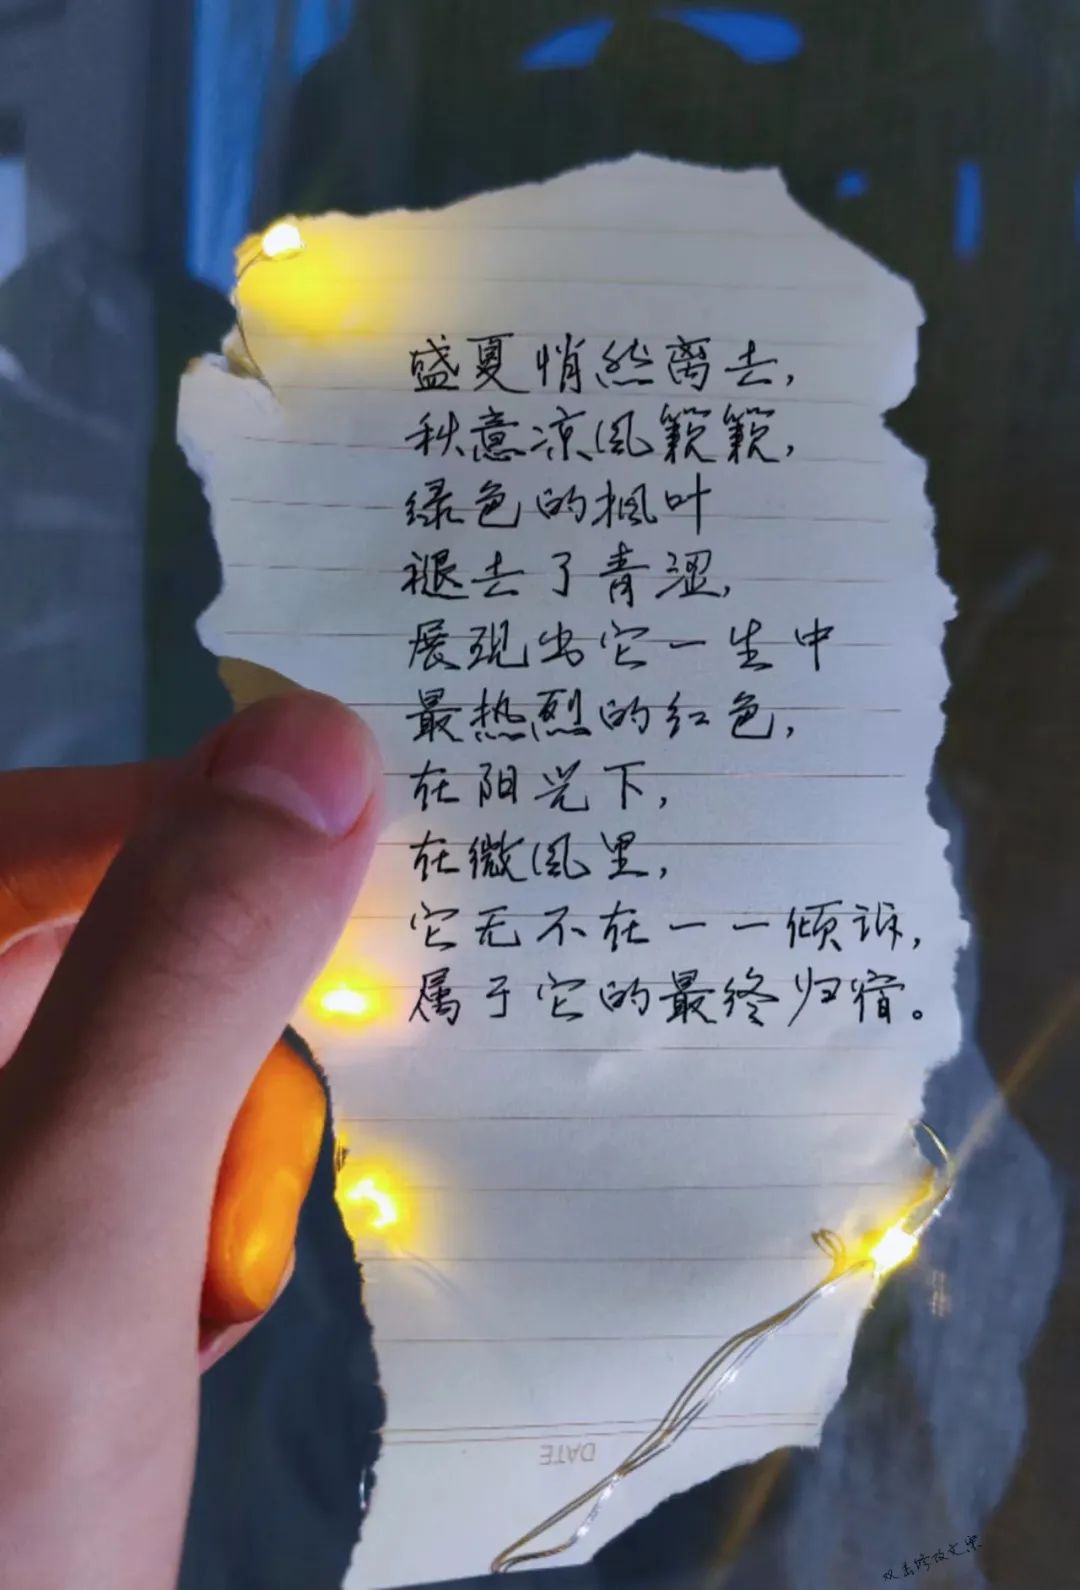 盛夏悄然离去,
秋意凉风簌簌,
绿色的枫叶
褪去了青涩,
展现出它一生中
最热烈的红色,
在阳光下,
在微风里,
它无不在一一倾诉,
属于它的最终归宿。
DATE
双击修改文案